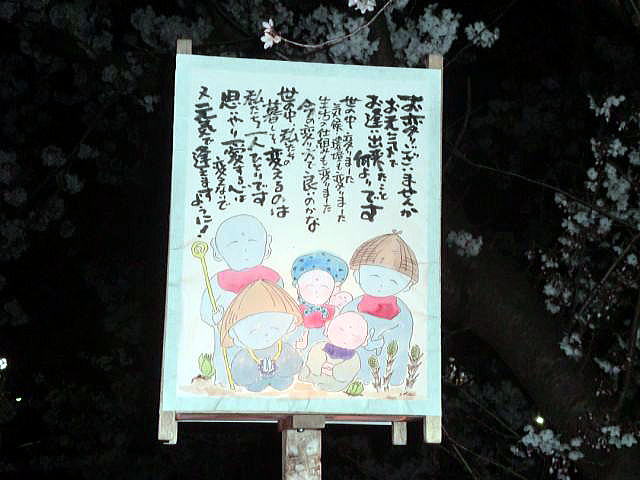 お変りございませんか
お元気で
お逢い出来たこと
何よりです
世の中変りました
気候環境も変りました
生活の仕組みも変りました
今の変りかたで良いのかな
世の中私たちの
暮し 変えるのは
私たち一人ひとりです
思いやり愛する心は
変えないで
又元気で逢えますように！